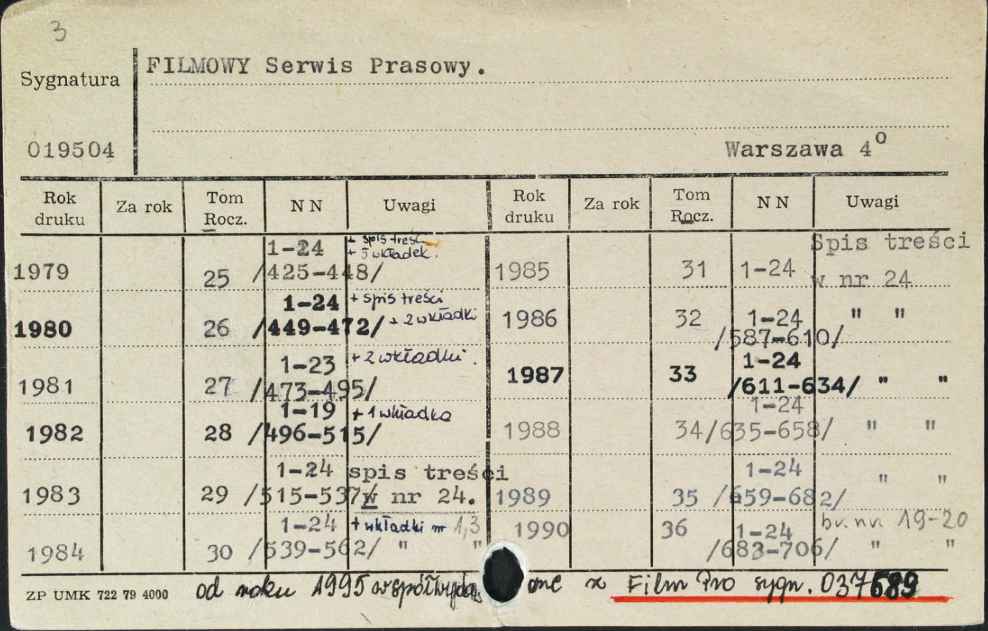 3
Sygnatura
FILMOWY Serwis Prasowy.
019504
Warszawa 4°
Rok druku Za rok Tom Rocz. N N Uwagi Rok druku Za rok Tom Rocz. N N Uwagi
1979 25 1-24 /425-448/ + spis treści + 5 wkładek.
1980 26 1-24 /449-472/ + spis treści + 2 wkładki
1981 27 1-23 /473-495/ + 2 wkładki.
1982 28 1-19 /496-515/ + 1 wkładka
1983 29 1-24 /515-537/ spis treści w nr 24.
1984 30 1-24 /539-562/ + wkładki nr 1,3 " "
1985 31 1-24 Spis treści w nr 24
1986 32 1-24 /587-610/ " "
1987 33 1-24 /611-634/ " "
1988 34 1-24 /635-658/ " "
1989 35 1-24 /659-682/ " "
1990 36 1-24 /683-706/ br. nr. 19-20 " "
ZP UMK 722 79 4000
od roku 1995 współwyda ne z Film Pro sygn. 037689